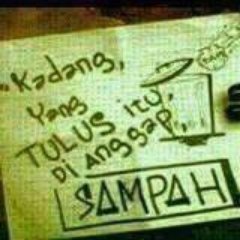 "Kadang,
Yang
TULUS itu,
Di Anggap,
SAMPAH